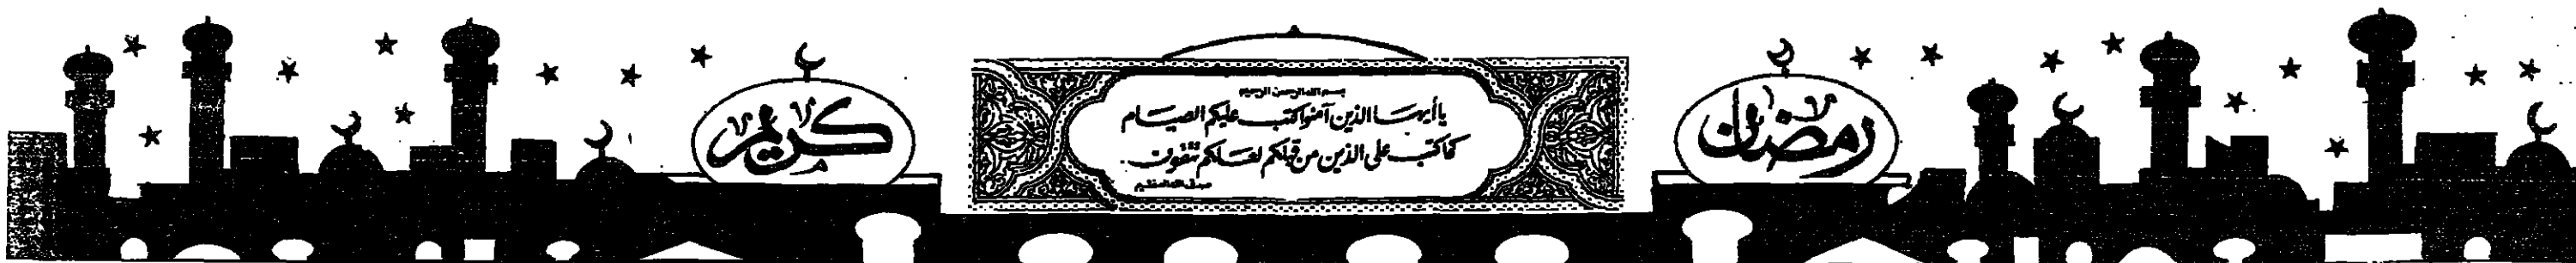 رمضان
بسم الله الرحمن الرحيم
يا أيهـا الذين آمنوا كتب عليكم الصيـام
كما كتب على الذين من قبلكم لعلكم تتقون.
صدق الله العظيم
كريم